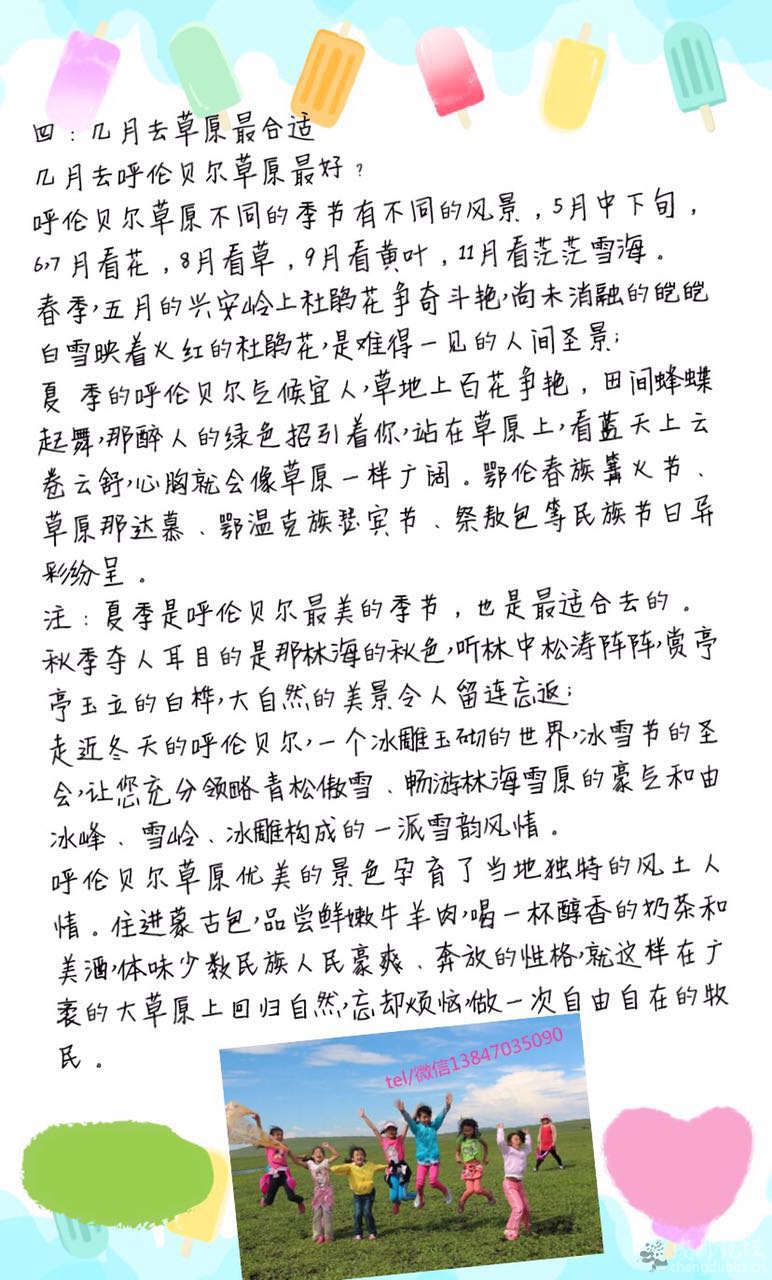 四：几月去草原最合适
几月去呼伦贝尔草原最好？
呼伦贝尔草原不同的季节有不同的风景，5月中下旬，
6,7月看花，8月看草，9月看黄叶，11月看茫茫雪海。
春季,五月的兴安岭上杜鹃花争奇斗艳,尚未消融的皑皑
白雪映着火红的杜鹃花,是难得一见的人间圣景;
夏 季的呼伦贝尔气候宜人,草地上百花争艳，田间蜂蝶
起舞,那醉人的绿色招引着你,站在草原上,看蓝天上云
卷云舒,心胸就会像草原一样广阔。鄂伦春族篝火节、
草原那达慕、鄂温克族瑟宾节、祭敖包等民族节日异
彩纷呈。
注：夏季是呼伦贝尔最美的季节，也是最适合去的。
秋季夺人耳目的是那林海的秋色,听林中松涛阵阵,赏亭
亭玉立的白桦,大自然的美景令人留连忘返;
走近冬天的呼伦贝尔,一个冰雕玉砌的世界,冰雪节的圣
会,让您充分领略青松傲雪、畅游林海雪原的豪气和由
冰峰、雪岭、冰雕构成的一派雪韵风情。
呼伦贝尔草原优美的景色孕育了当地独特的风土人
情。住进蒙古包,品尝鲜嫩牛羊肉,喝一杯醇香的奶茶和
美酒,体味少数民族人民豪爽、奔放的性格,就这样在广
袤的大草原上回归自然,忘却烦恼,做一次自由自在的牧
民。
tel/微信13847035090
成都论坛
chengdubbs.cn